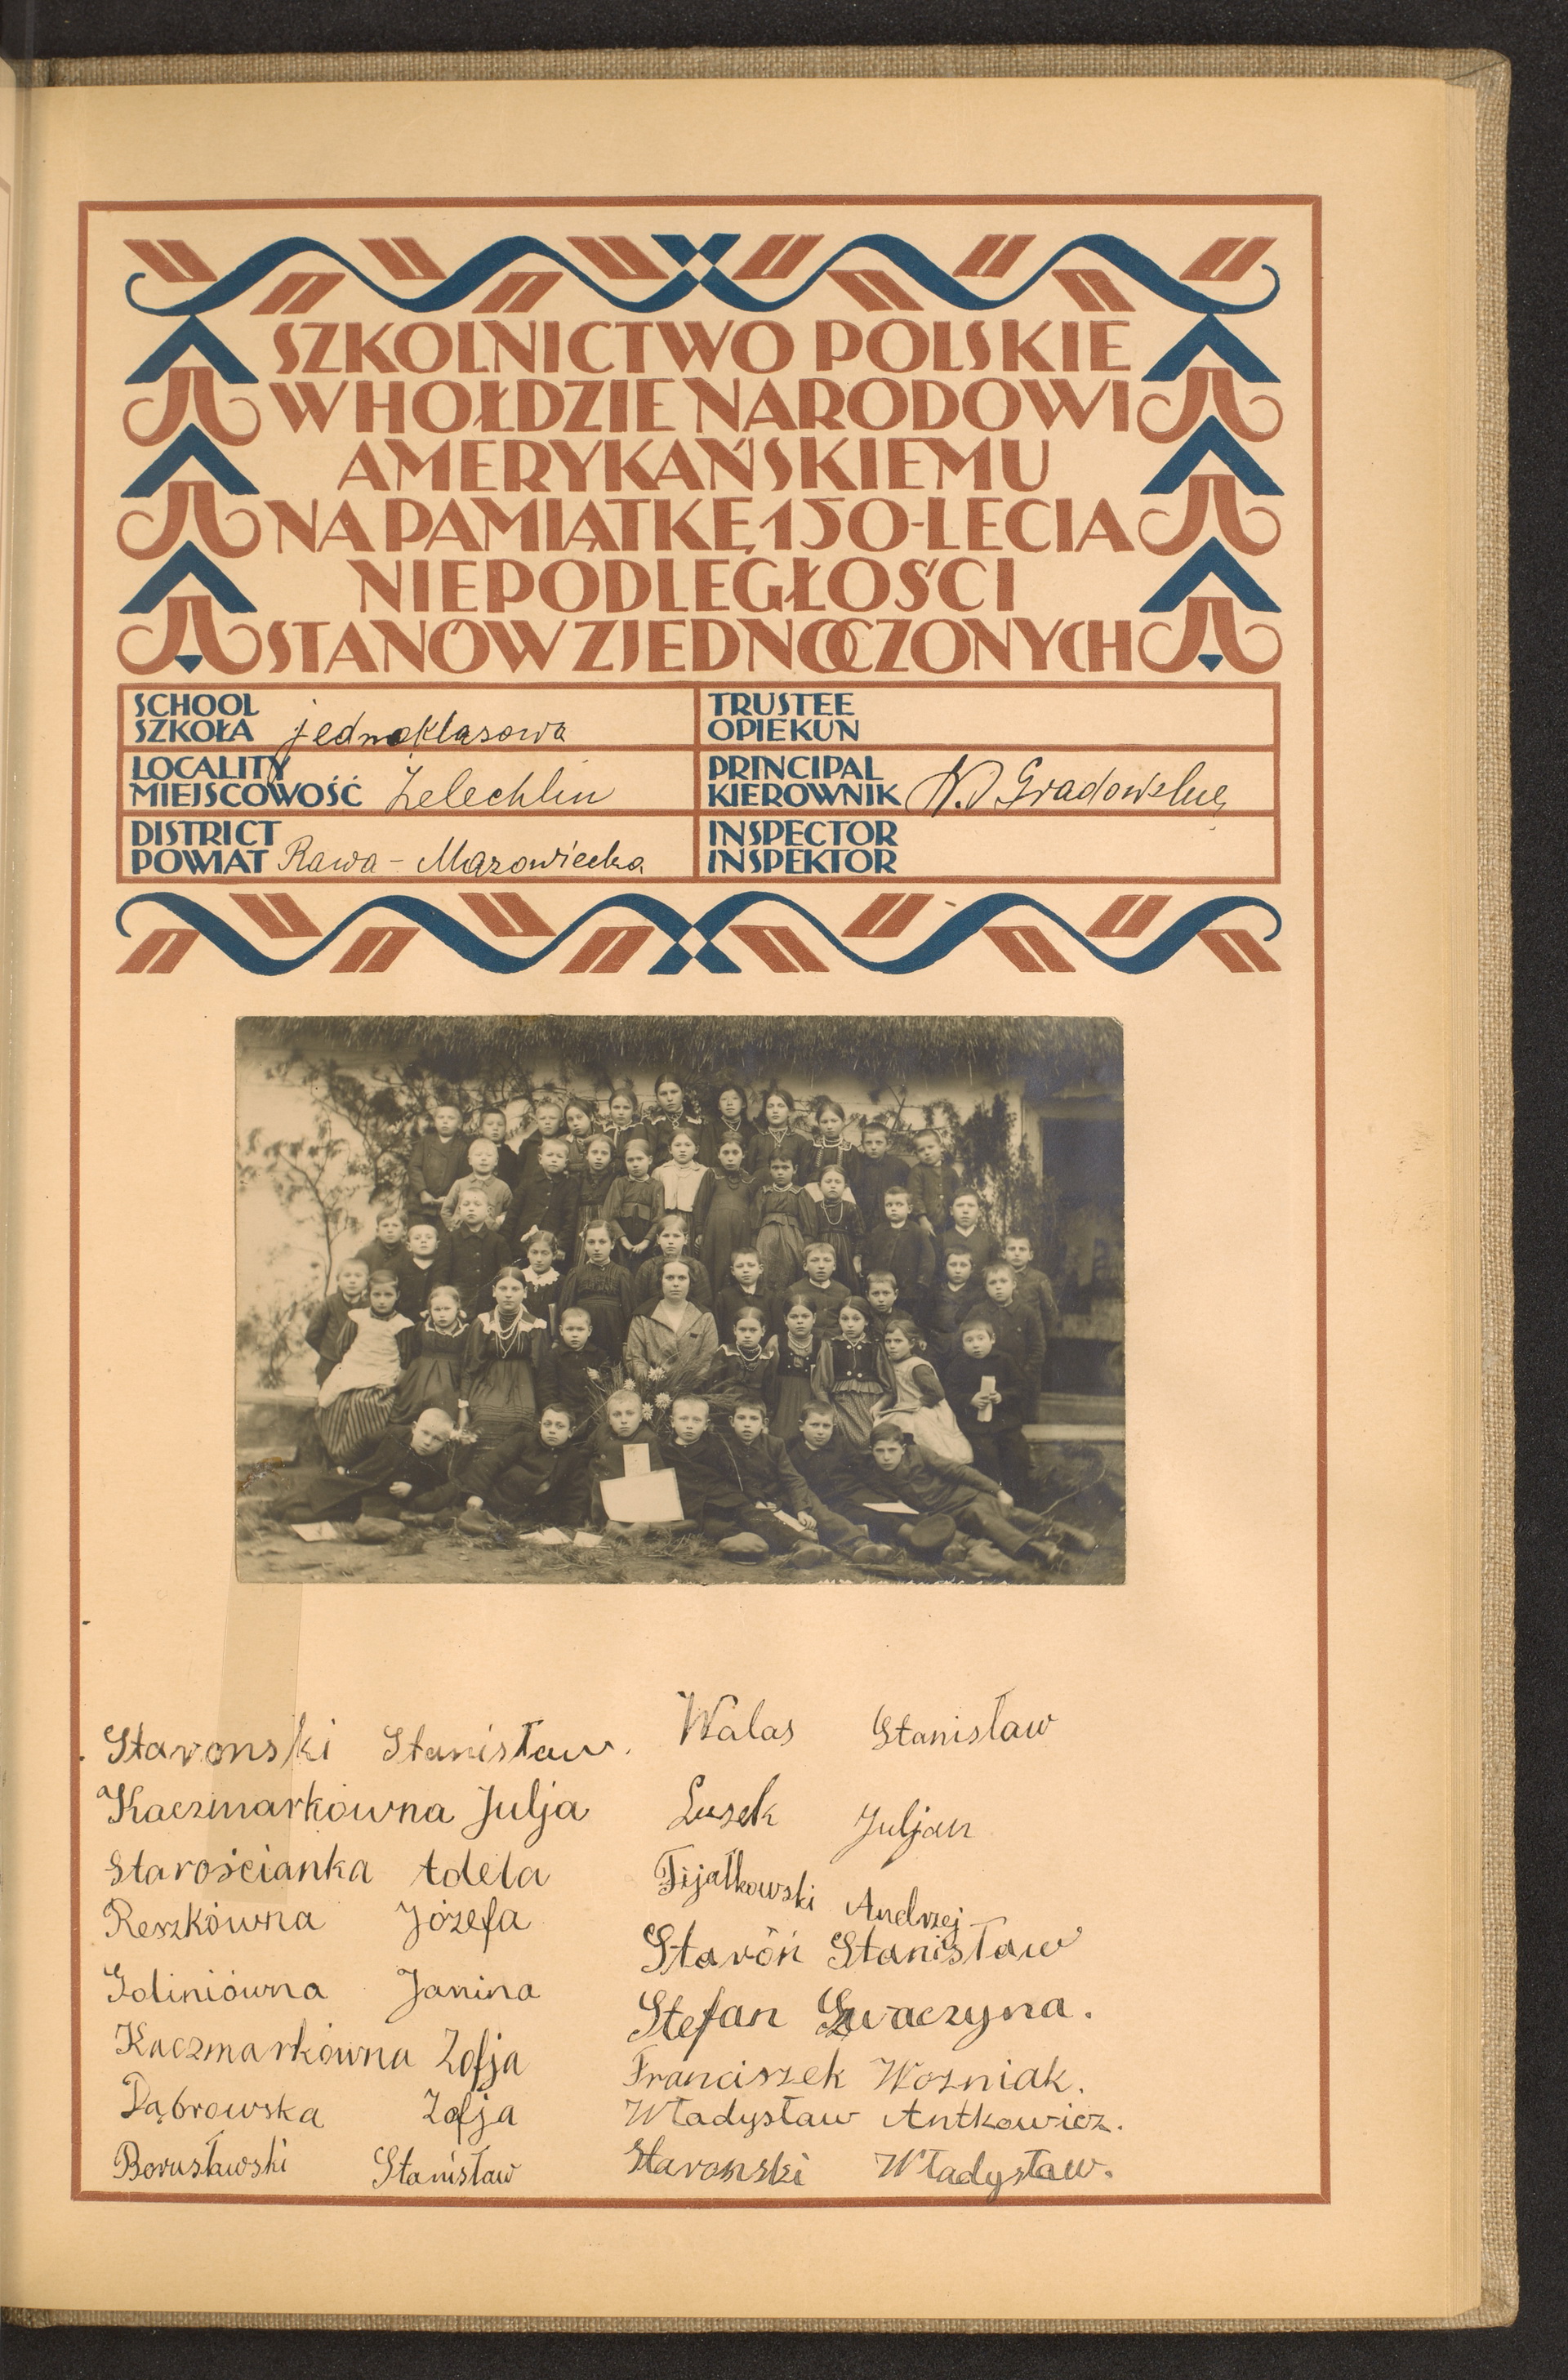 SZKOLNICTWO POLSKIE
W HOŁDZIE NARODOWI
AMERYKAŃSKIEMU
NA PAMIĄTKĘ 150-LECIA
NIEPODLEGŁOŚCI
STANÓW ZJEDNOCZONYCH
SCHOOL
SZKOŁA jednoklasowa
TRUSTEE
OPIEKUN
LOCALITY
MIEJSCOWOŚĆ Żelechlin
PRINCIPAL
KIEROWNIK
DISTRICT
POWIAT Rawa - Mazowiecka
INSPECTOR
INSPEKTOR
Staronski Stanisław.
Kaczmarkówna Julja
Starościanka Adela
Reszkówna Józefa
Goliniówna Janina
Kaczmarkówna Zofja
Dąbrowska Zofja
Borusławski Stanisław
Walas Stanisław
Lusek Juljan
Fijałkowski Andrzej
Staróń Stanisław
Stefan Swaczyna.
Franciszek Wozniak.
Władysław Antkowicz.
Staronski Władysław.